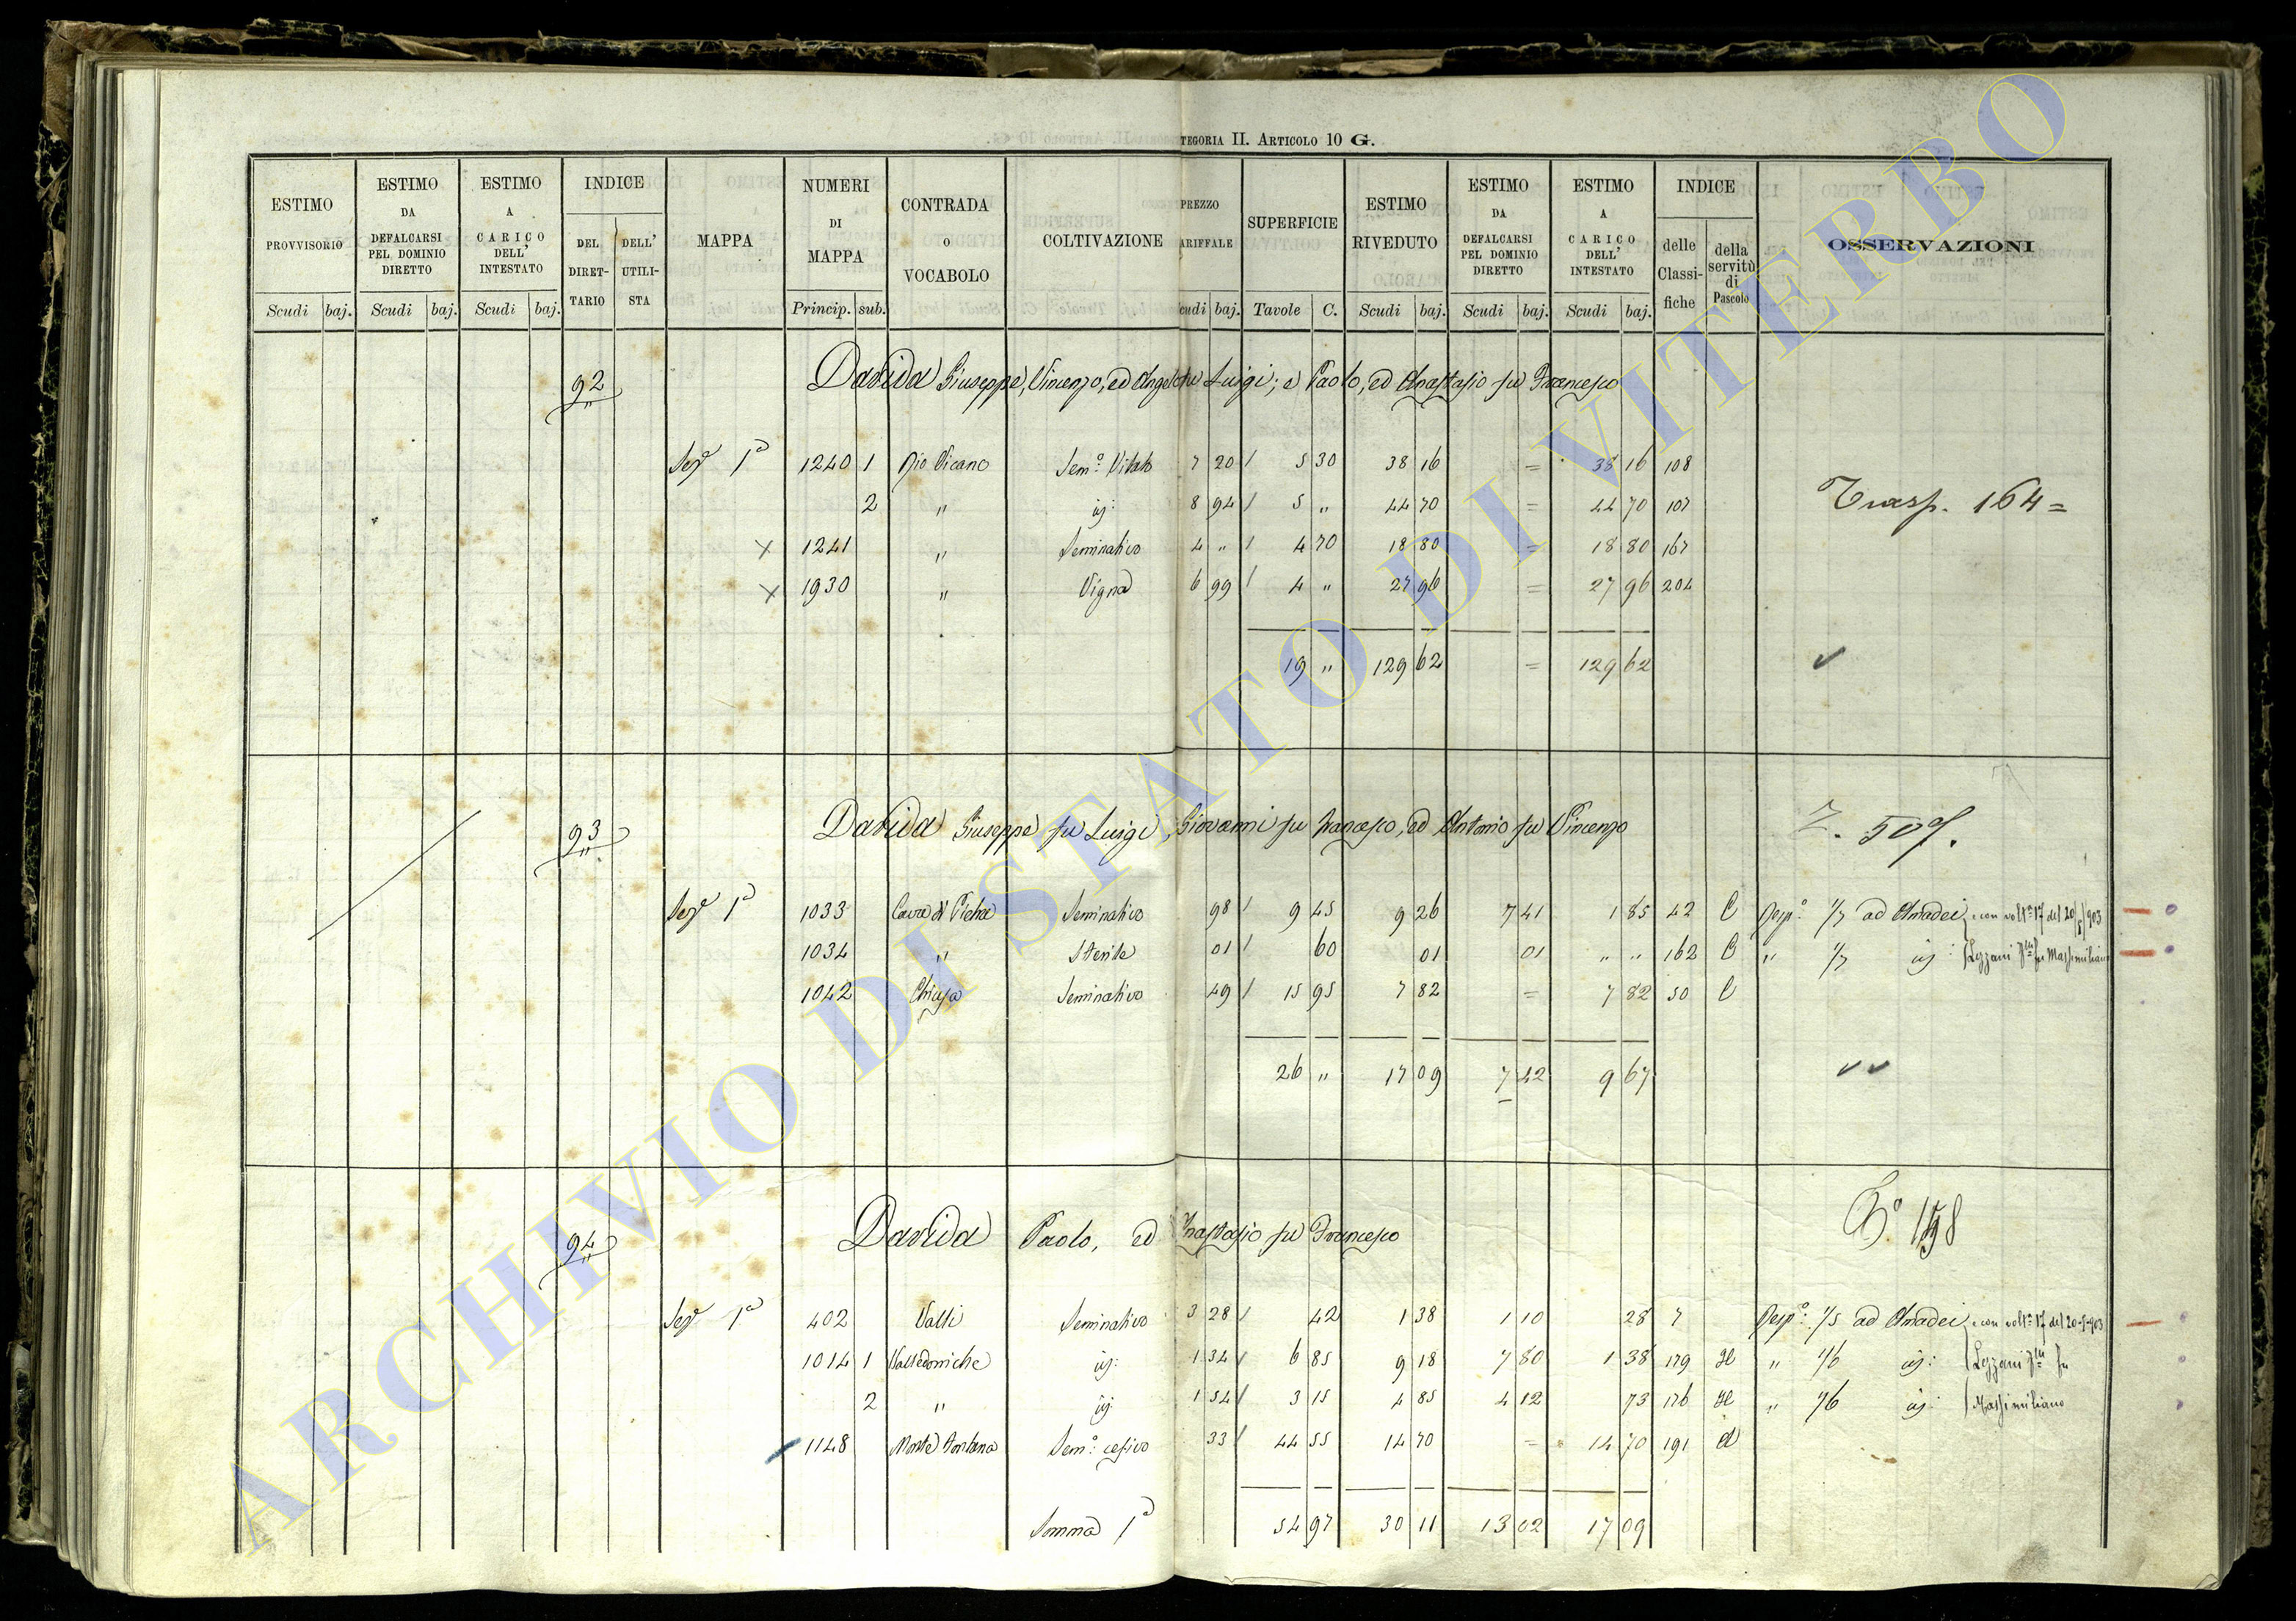 TEGORIA II. ARTICOLO 10 G.
ESTIMO PROVVISORIO | ESTIMO DA DEFALCARSI PEL DOMINIO DIRETTO | ESTIMO A CARICO DELL' INTESTATO | INDICE DEL DIRETTARIO | DELL' UTILISTA | MAPPA | NUMERI DI MAPPA | CONTRADA O VOCABOLO | COLTIVAZIONE | PREZZO ARIFFALE | SUPERFICIE | ESTIMO RIVEDUTO | ESTIMO DA DEFALCARSI PEL DOMINIO DIRETTO | ESTIMO A CARICO DELL' INTESTATO | INDICE delle Classifiche | della servitù di Pascolo | OSSERVAZIONI
Scudi baj. Scudi baj. Scudi baj. Princip. sub. cudi baj. Tavole C. Scudi baj. Scudi baj. Scudi baj.
92 Davida Giuseppe, Vincenzo, ed Angelo fu Luigi; e Paolo, ed Anastasio fu Francesco
Sez.e 1a 1240 1 Rio Vicano Sem.o Vitato 7 20 5 30 38 16 = 38 16 108
2 " id: 8 94 5 " 44 70 = 44 70 107 Trasp. 164=
x 1241 " Seminativo 4 " 4 70 18 80 = 18 80 167
x 1930 " Vigna 6 99 4 " 27 96 = 27 96 204
19 " 129 62 = 129 62
93 Davida Giuseppe fu Luigi, Giovanni fu Francesco, ed Antonio fu Vincenzo
Sez.e 1a 1033 Cava di Pietra Seminativo 98 9 45 9 26 7 41 1 85 42 C Risp.a: 1/7 ad Amadei e con volt.a 17 del 20/5/903
1034 " Sterile 01 60 01 01 " " 162 C " 1/7 id:
1042 Chiusa Seminativo 49 15 95 7 82 = 7 82 50 C
26 " 17 09 7 42 9 67
94 Davida Paolo, ed Anastasio fu Francesco
Sez.e 1a 402 Valli Seminativo 3 28 42 1 38 1 10 28 7 Risp.a: 1/5 ad Amadei e con volt.a 17 del 20-5-903
1014 1 Valledoniche id: 1 34 6 85 9 18 7 80 1 38 179 " 1/6 id:
2 " id: 1 54 3 15 4 85 4 12 73 176 " 1/6 id: Massimiliano
1148 Monte Fontana Sem.o cesivo 33 44 55 14 70 = 14 70 191
Somma 1a 54 97 30 11 13 02 17 09
ARCHIVIO DI STATO DI VITERBO